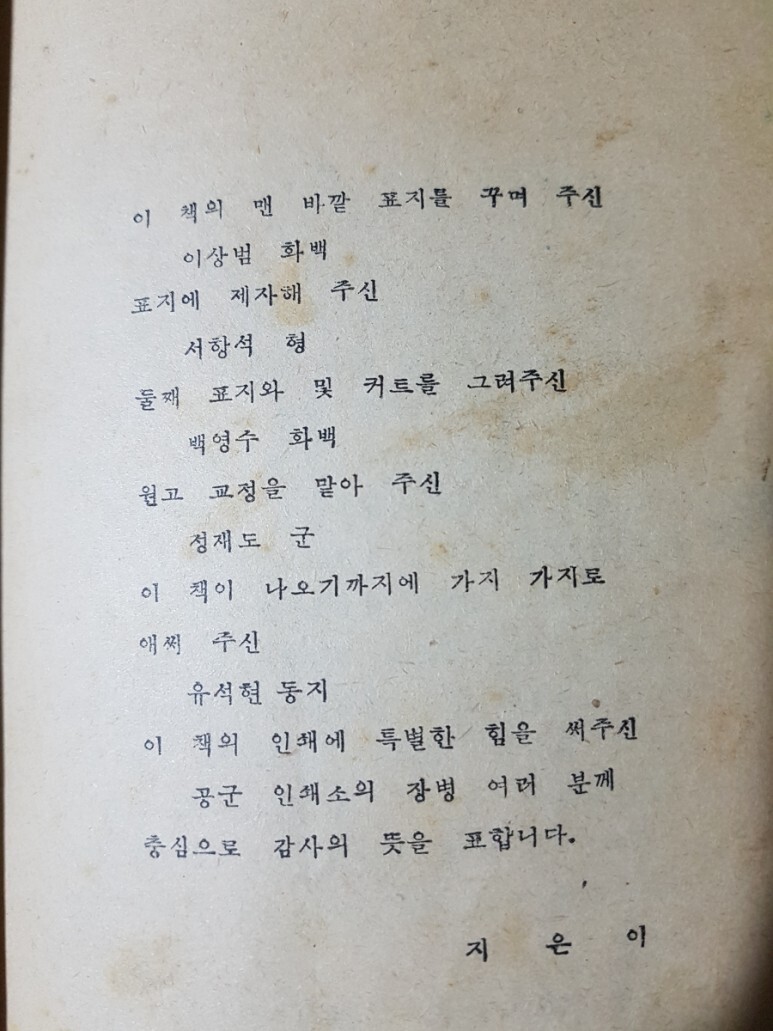 이 책의 맨 바깥 표지를 꾸며 주신
이상범 화백
표지에 제자해 주신
서항석 형
둘째 표지와 및 커트를 그려주신
백영수 화백
원고 교정을 맡아 주신
정재도 군
이 책이 나오기까지에 가지 가지로
애써 주신
유석현 동지
이 책의 인쇄에 특별한 힘을 써주신
공군 인쇄소의 장병 여러 분께
충심으로 감사의 뜻을 표합니다.
지 은 이